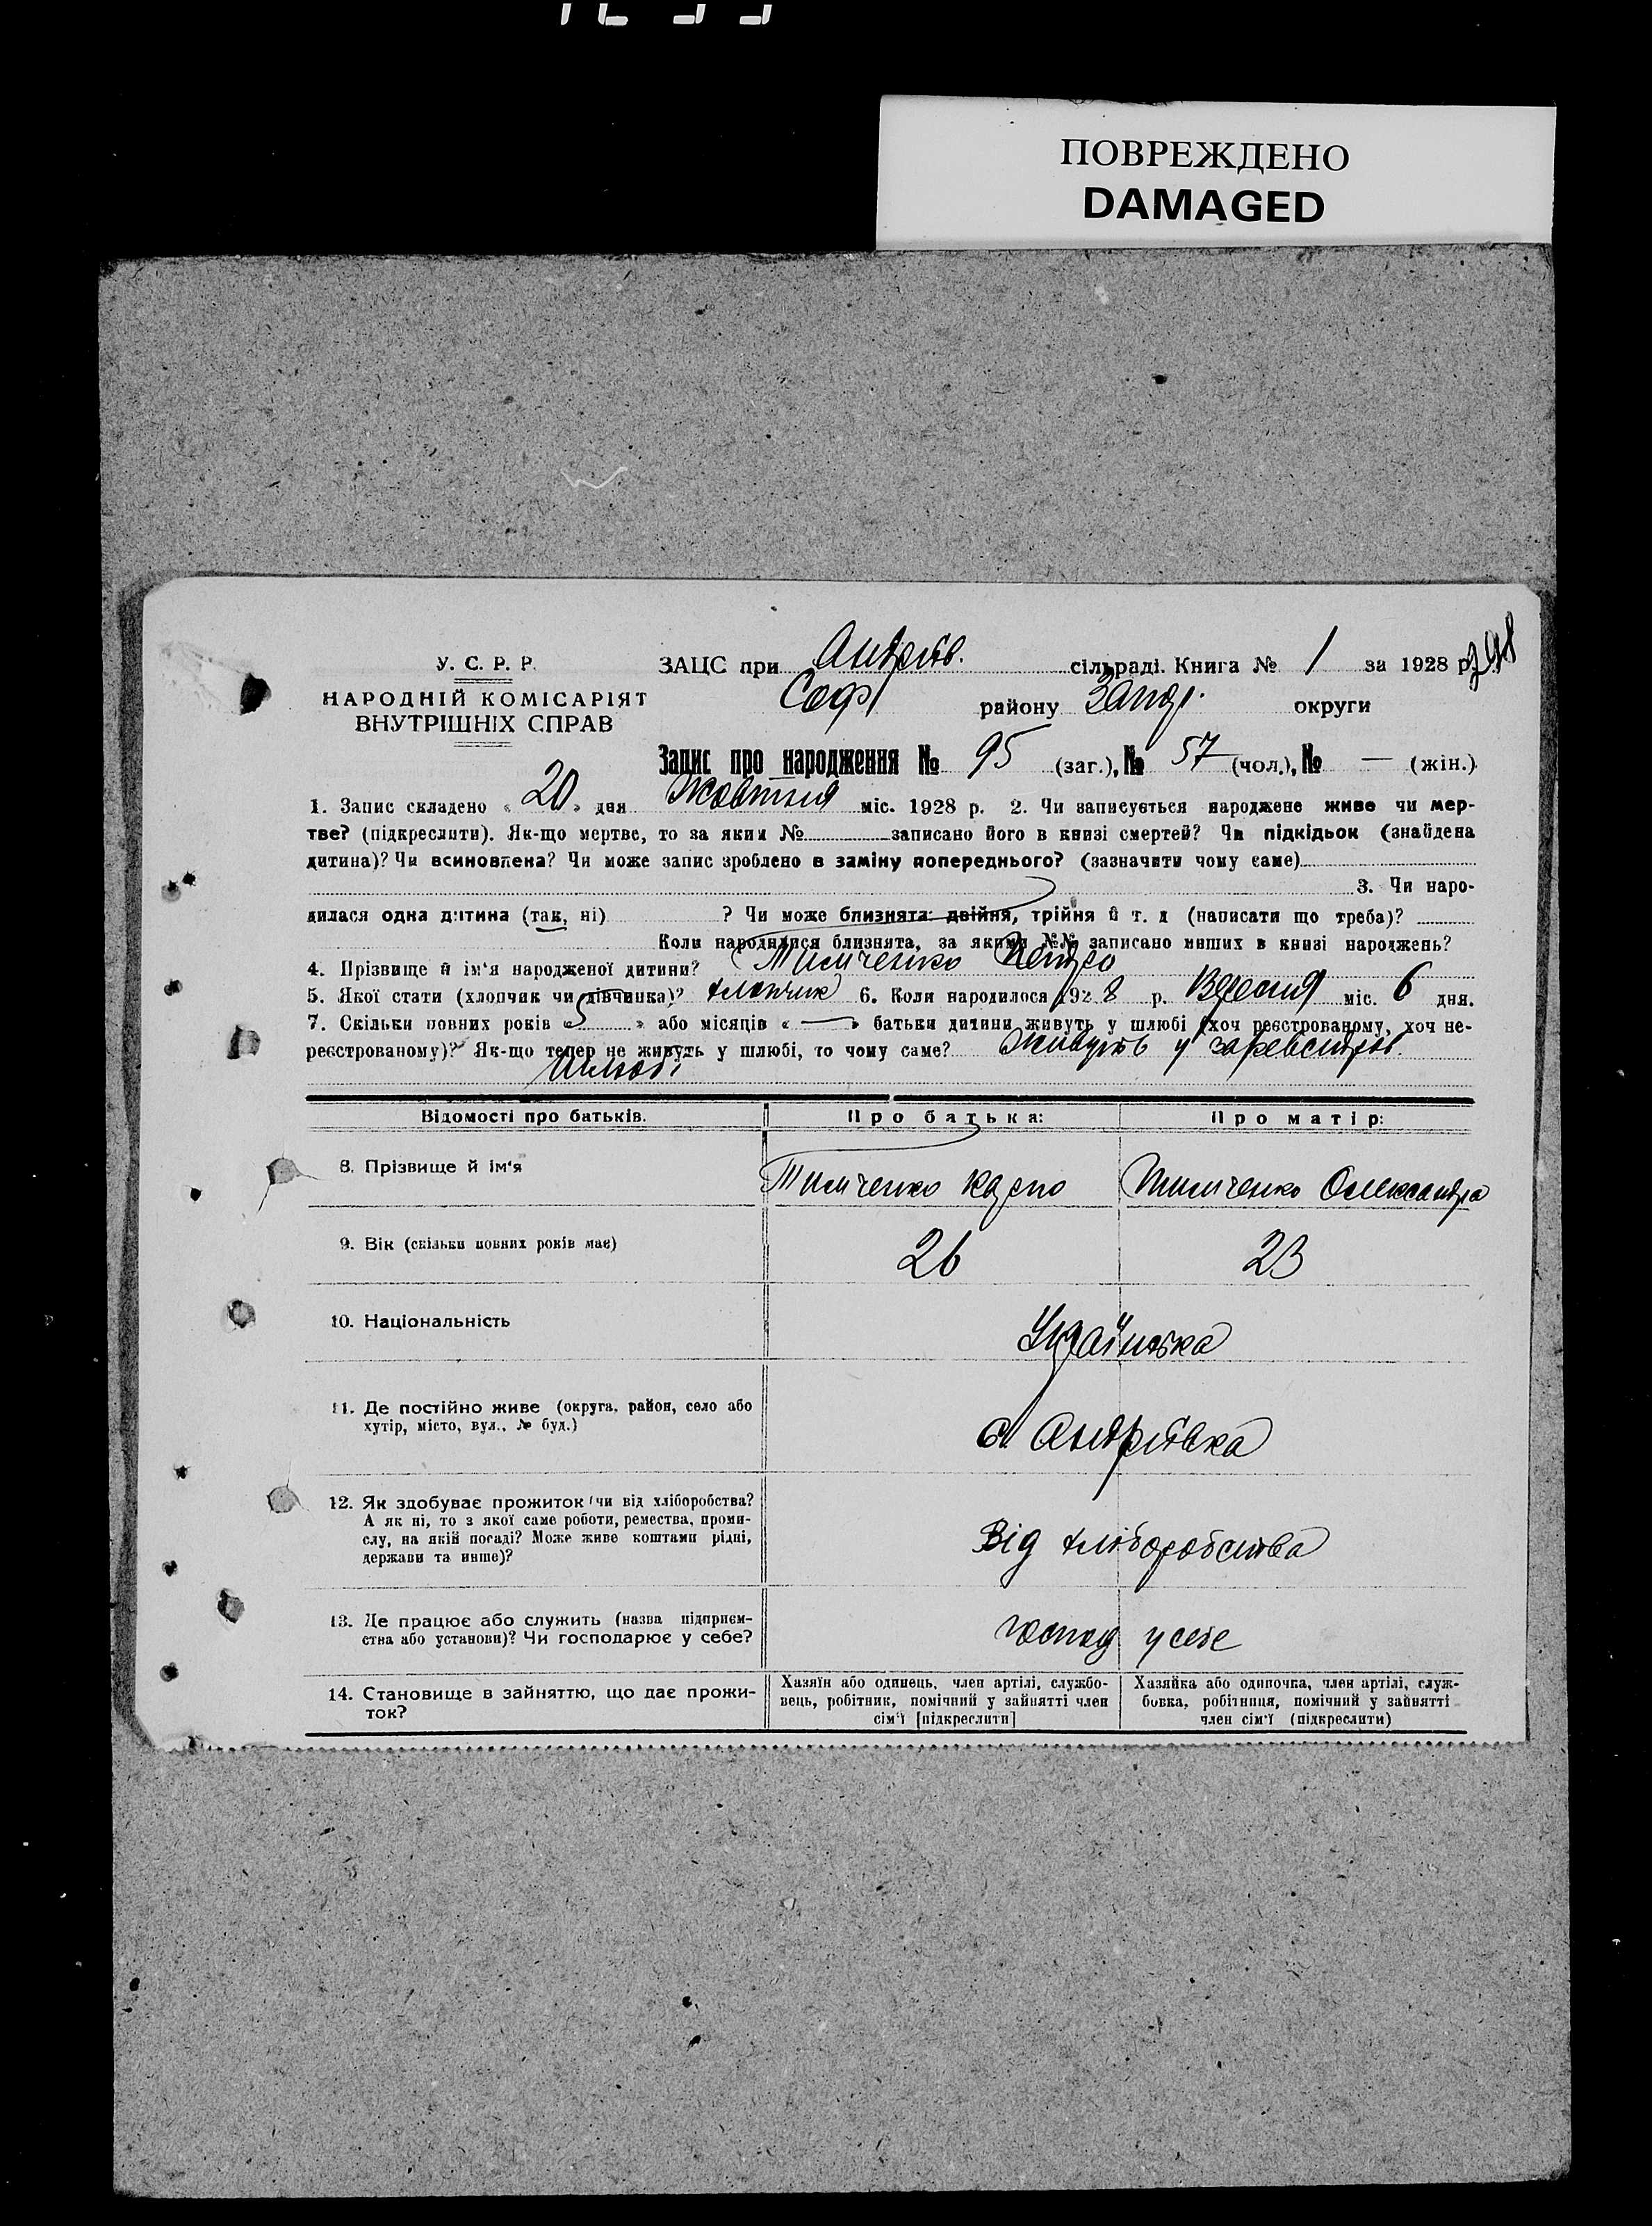 ПОВРЕЖДЕНО
DAMAGED
У. С. Р. Р.
НАРОДНІЙ КОМІСАРІЯТ
ВНУТРІШНІХ СПРАВ
ЗАЦС при Андріїв. сільраді. Книга № 1 за 1928 р.
Соф. району Запор. округи
Запис про народження № 95 (заг.), № 57 (чол.), № — (жін.)
1. Запис складено « 20 » дня Жовтня міс. 1928 р. 2. Чи записується народжене живе чи мер-
тве? (підкреслити). Як-що мертве, то за яким № записано його в книзі смертей? Чи підкідьок (знайдена
дитина)? Чи всиновлена? Чи може запис зроблено в заміну попереднього? (зазначити чому саме)
3. Чи наро-
дилася одна дитина (так, ні) ? Чи може близнята: двійня, трійня й т. д (написати що треба)?
Коли народилися близнята, за якими №№ записано инших в книзі народжень?
4. Прізвище й ім'я народженої дитини? Тимченко Петро
5. Якої стати (хлопчик чи дівчинка)? хлопчик 6. Коли народилося 1928 р. Вересня міс. 6 дня.
7. Скільки повних років « 5 » або місяців « — » батьки дитини живуть у шлюбі (хоч реєстрованому, хоч не-
реєстрованому)? Як-що тепер не живуть у шлюбі, то чому саме? Живуть у
шлюбі
Відомості про батьків. Про батька: Про матір:
8. Прізвище й ім'я Тимченко Карпо Тимченко Олександра
9. Вік (скільки повних років має) 26 23
10. Національність Українська
11. Де постійно живе (округа, район, село або
хутір, місто, вул., № буд.)
с. Андріївка
12. Як здобуває прожиток (чи від хліборобства?
А як ні, то з якої саме роботи, ремества, проми-
слу, на якій посаді? Може живе коштами рідні,
держави та инше)?
Від хліборобства
13. Де працює або служить (назва підприєм-
ства або установи)? Чи господарює у себе?
господ у себе
14. Становище в зайняттю, що дає прожи-
ток?
Хазяїн або одинець, член артілі, службо-
вець, робітник, помічний у зайнятті член
сім'ї [підкреслити]
Хазяйка або одиночка, член артілі, служ-
бовка, робітниця, помічний у зайнятті
член сім'ї (підкреслити)